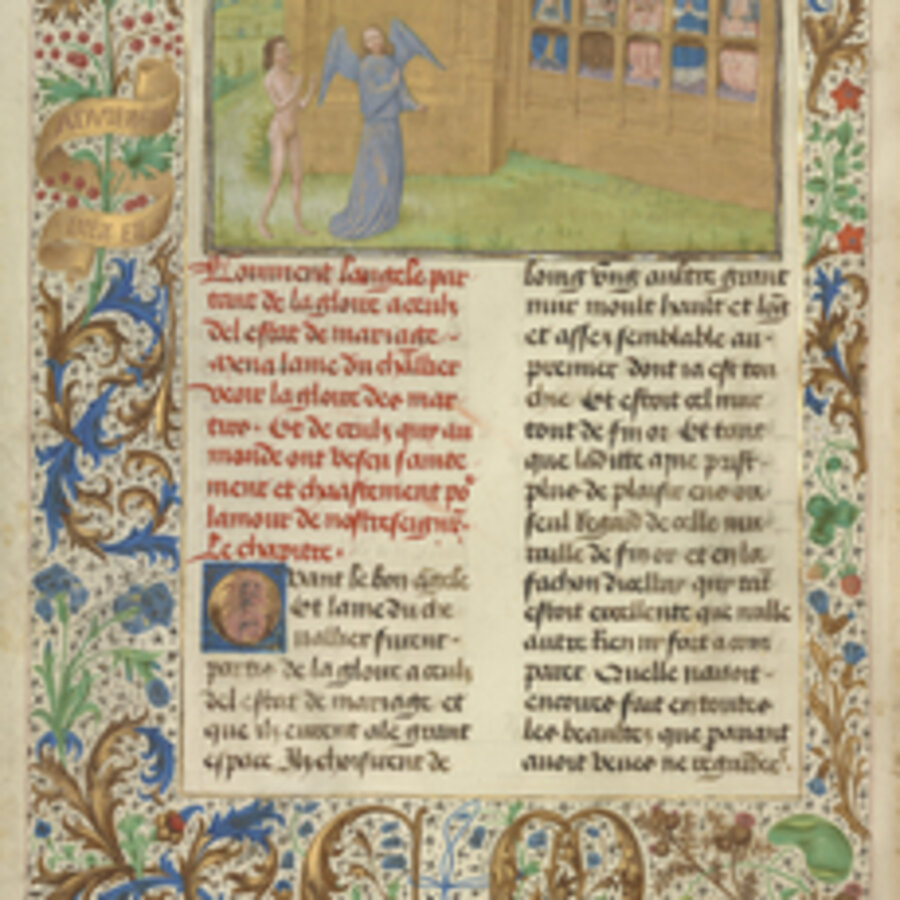 Comment langele par
tant de la gloire a ceulx
del estat de mariage
mena lame du chllier
veoir la gloire des mar
tirs. Et de ceulx qui au
monde ont vescu saincte
ment et chaastement po
lamour de nostre seigner.
Le chapitre.
Quant le bon angele
Et lame du che
uallier furent
partis de la gloire a ceulx
del estat de mariage et
que ilz eurent ale grant
espace Ilz choisirent de
loing vng aultre grant
mur moult hault et
et assez semblable au
premier dont
Et estoit cel mur
tout de fin or Et tant
que laditte ame prist
plus de plaisir
seul regard de celle mu
raille de fin or et en la
fachon dicelluy que tat
estoit excellente que nulle
autre rien ne soit a com
parer Quelle nauoit
encores fait en toutes
les beautes que parauant
auoit veues ne